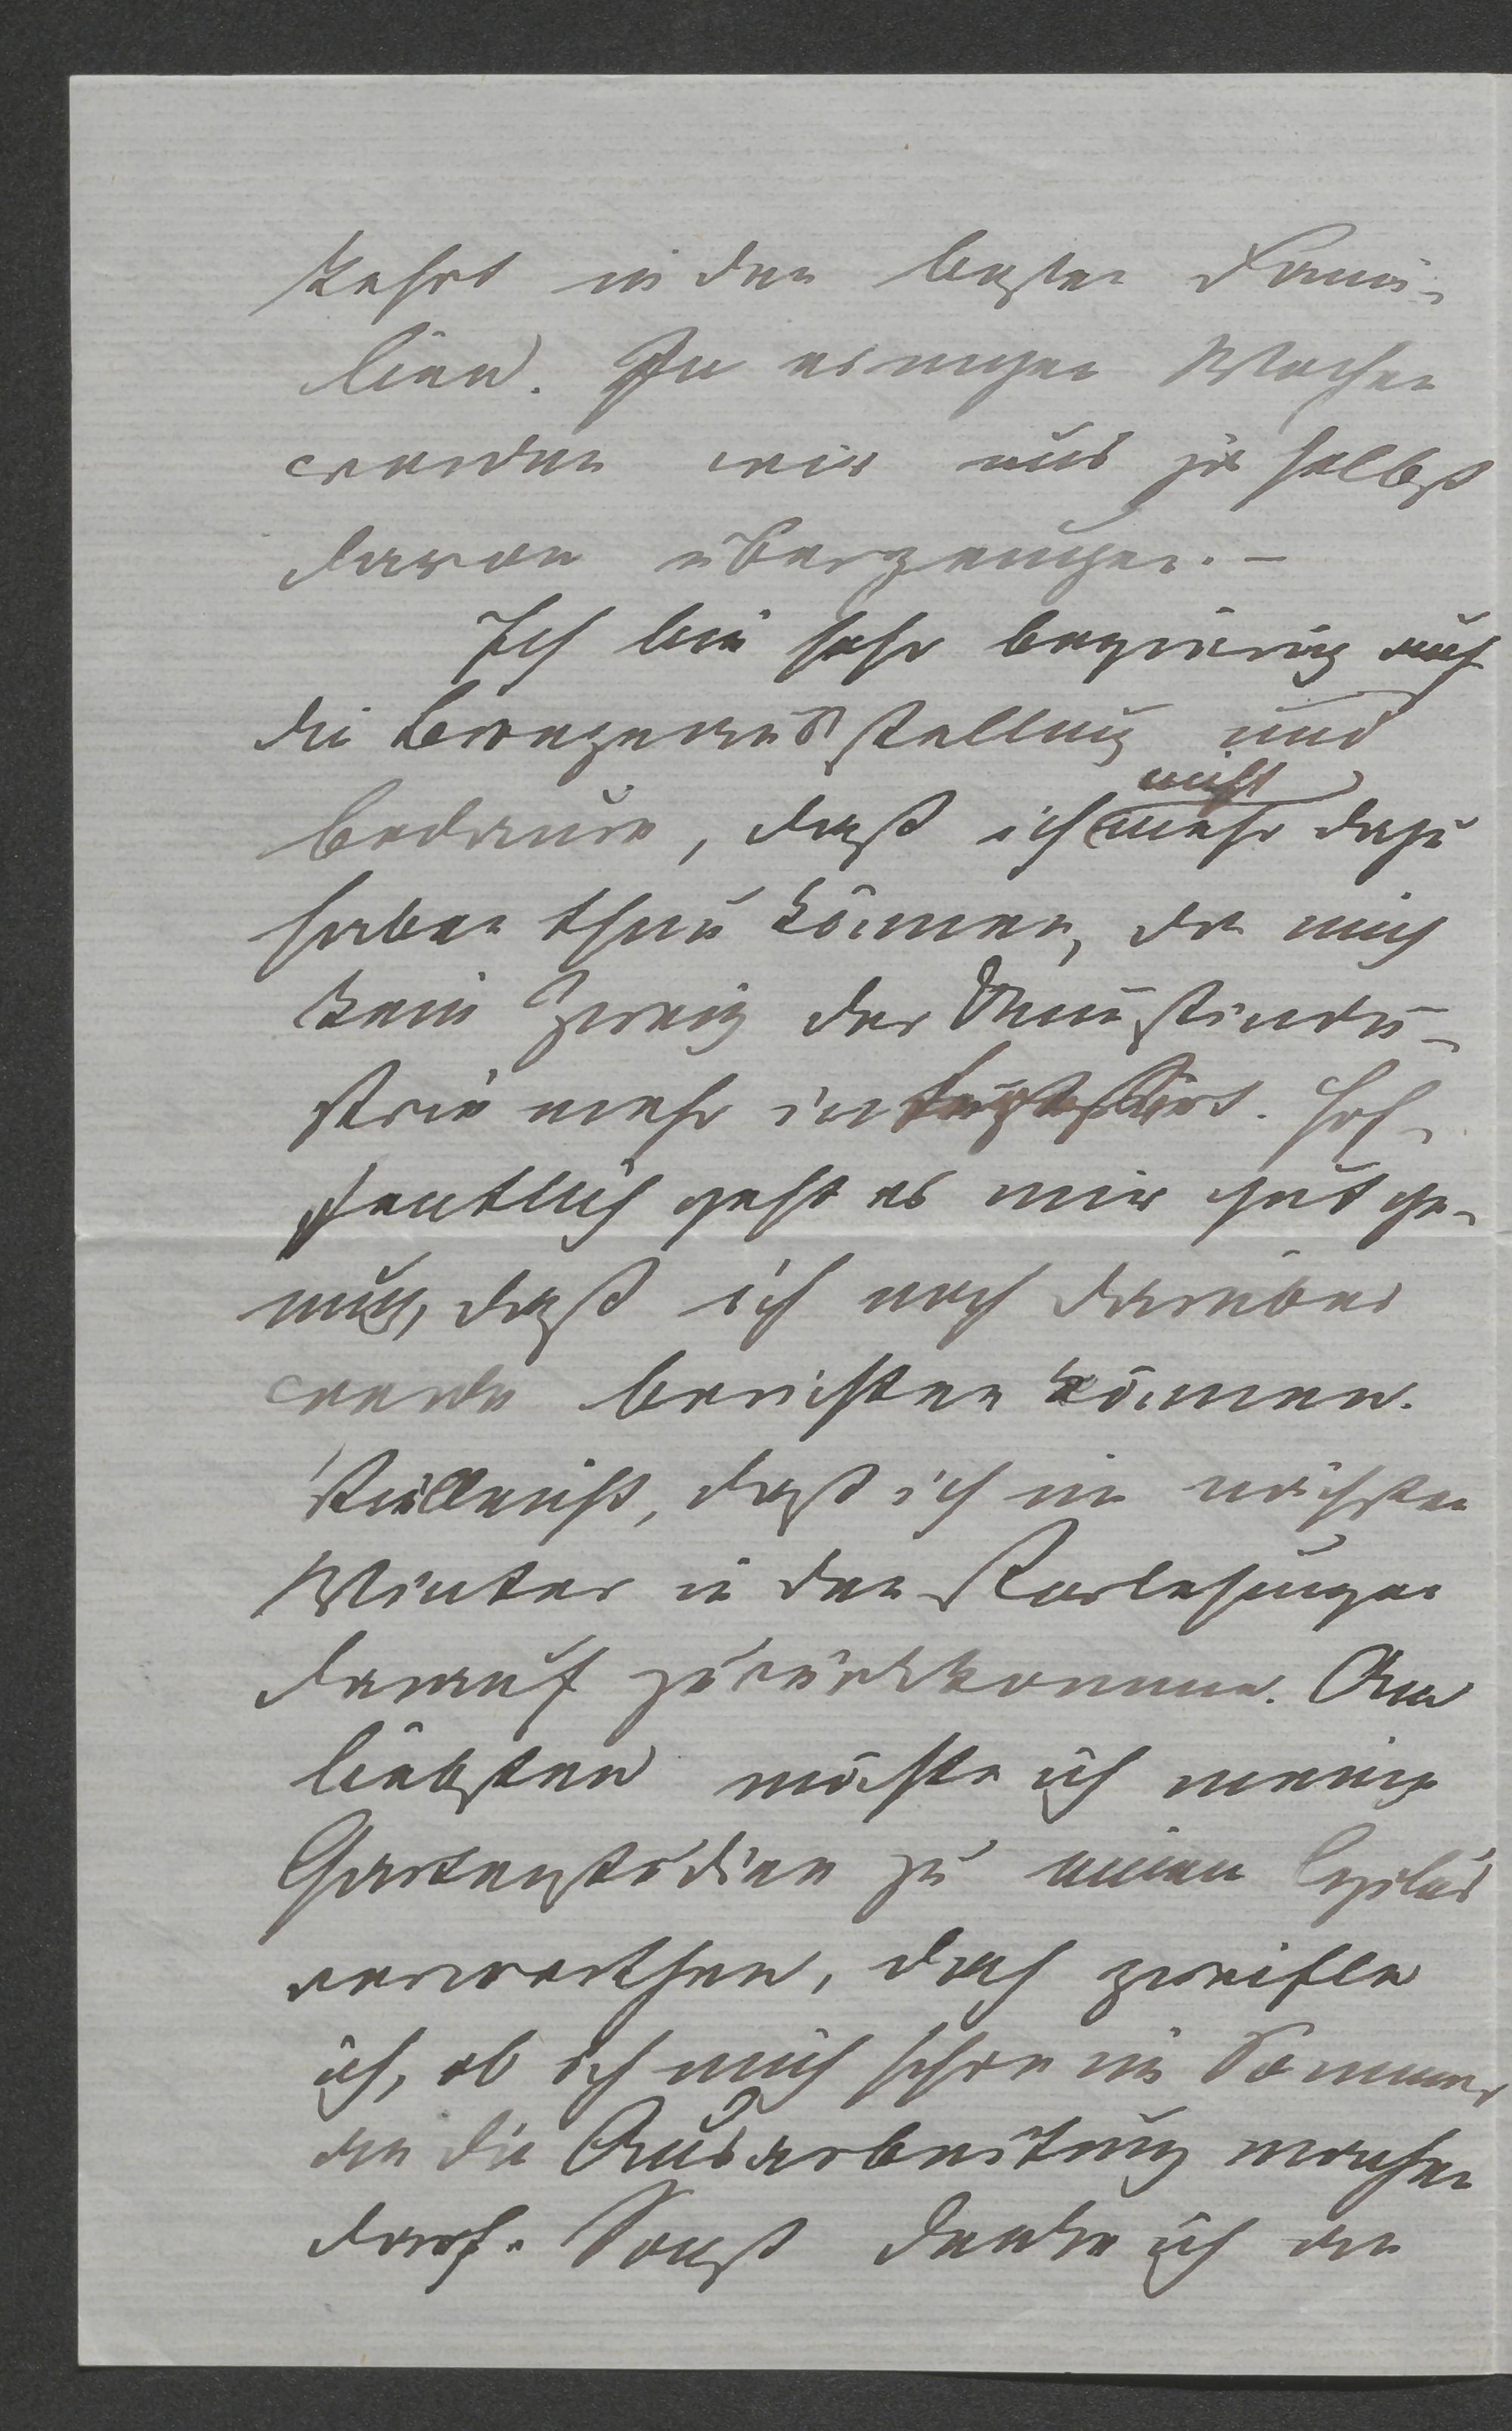 kehrt in den besten Fami-
lien. In einigen Wochen
werden wir uns ja selbst
davon überzeugen. –
Ich bin sehr begierig auf
die Bronzeausstellung und
bedaure, daß ich nicht mehr dazu
haben thun können, da mich
kein Zweig der Kunstindu-
strie mehr interessirt. Hof-
fentlich geht es mir gut ge-
nug, daß ich noch darüber
werde berichten können.
Vielleicht, daß ich im nächsten
Winter in den Vorlesungen
darauf zurückkomme. Am
liebsten möchte ich meine
Gartenstudien zu einem Cyclus
verwerthen, doch zweifle
ich, ob ich mich schon im Sommer
an die Ausarbeitung machen
darf. Sonst denke ich an